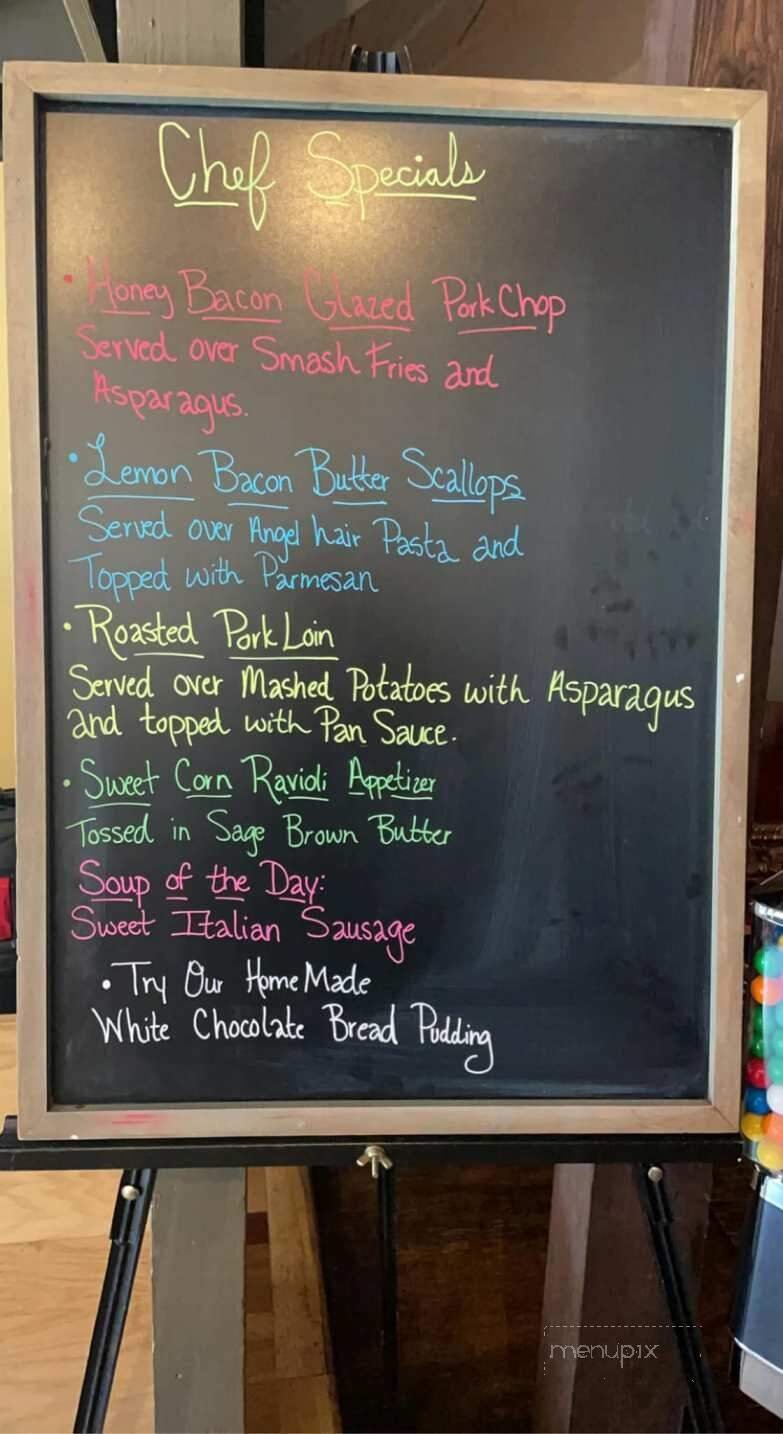 Chef Specials
• Honey Bacon Glazed Pork Chop
Served over Smash Fries and
Asparagus.
• Lemon Bacon Butter Scallops
Served over Angel hair Pasta and
Topped with Parmesan
• Roasted Pork Loin
Served over Mashed Potatoes with Asparagus
and topped with Pan Sauce.
• Sweet Corn Ravioli Appetizer
Tossed in Sage Brown Butter
Soup of the Day:
Sweet Italian Sausage
• Try Our HomeMade
White Chocolate Bread Pudding
menupix